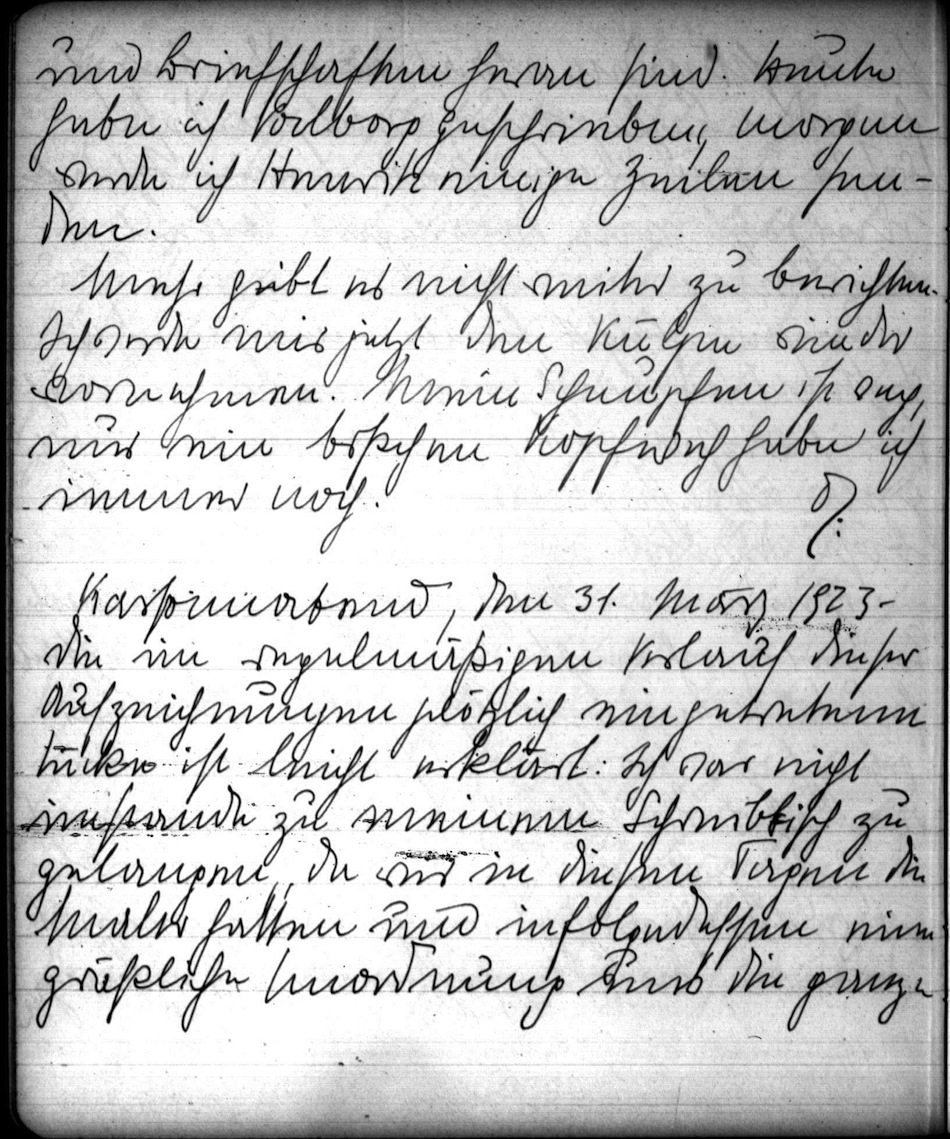 und Briefschaften heran sind. Heute
habe ich Volborg geschrieben, morgen
werde ich Henrik einige Zeilen sen-
den.
Mehr gibt es nicht weiter zu berichten.
Ich werde mir jetzt den wieder
vornehmen. Mein Schnupfen ist weg,
nur ein bißchen Kopfweh habe ich
immer noch.
Karsonnabend, den 31. März 1923-
die im regelmäßigen Verlauf dieser
Aufzeichnungen plötzlich eingetretene
Lücke ist leicht erklärt: Ich war nicht
imstande zu meinem Schreibtisch zu
gelangen, da wir in diesen Tagen die
Maler hatten und infolgedessen eine
gräßliche Unordnung uns die ganze